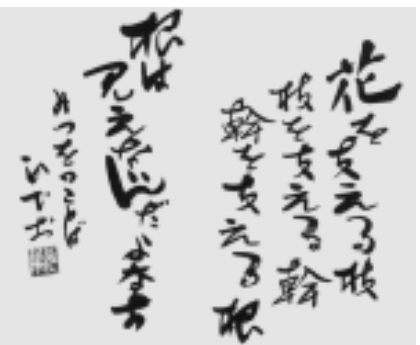 花を支える枝
枝を支える幹
幹を支える根
根は
見えないんだよなあ
みつをのことば